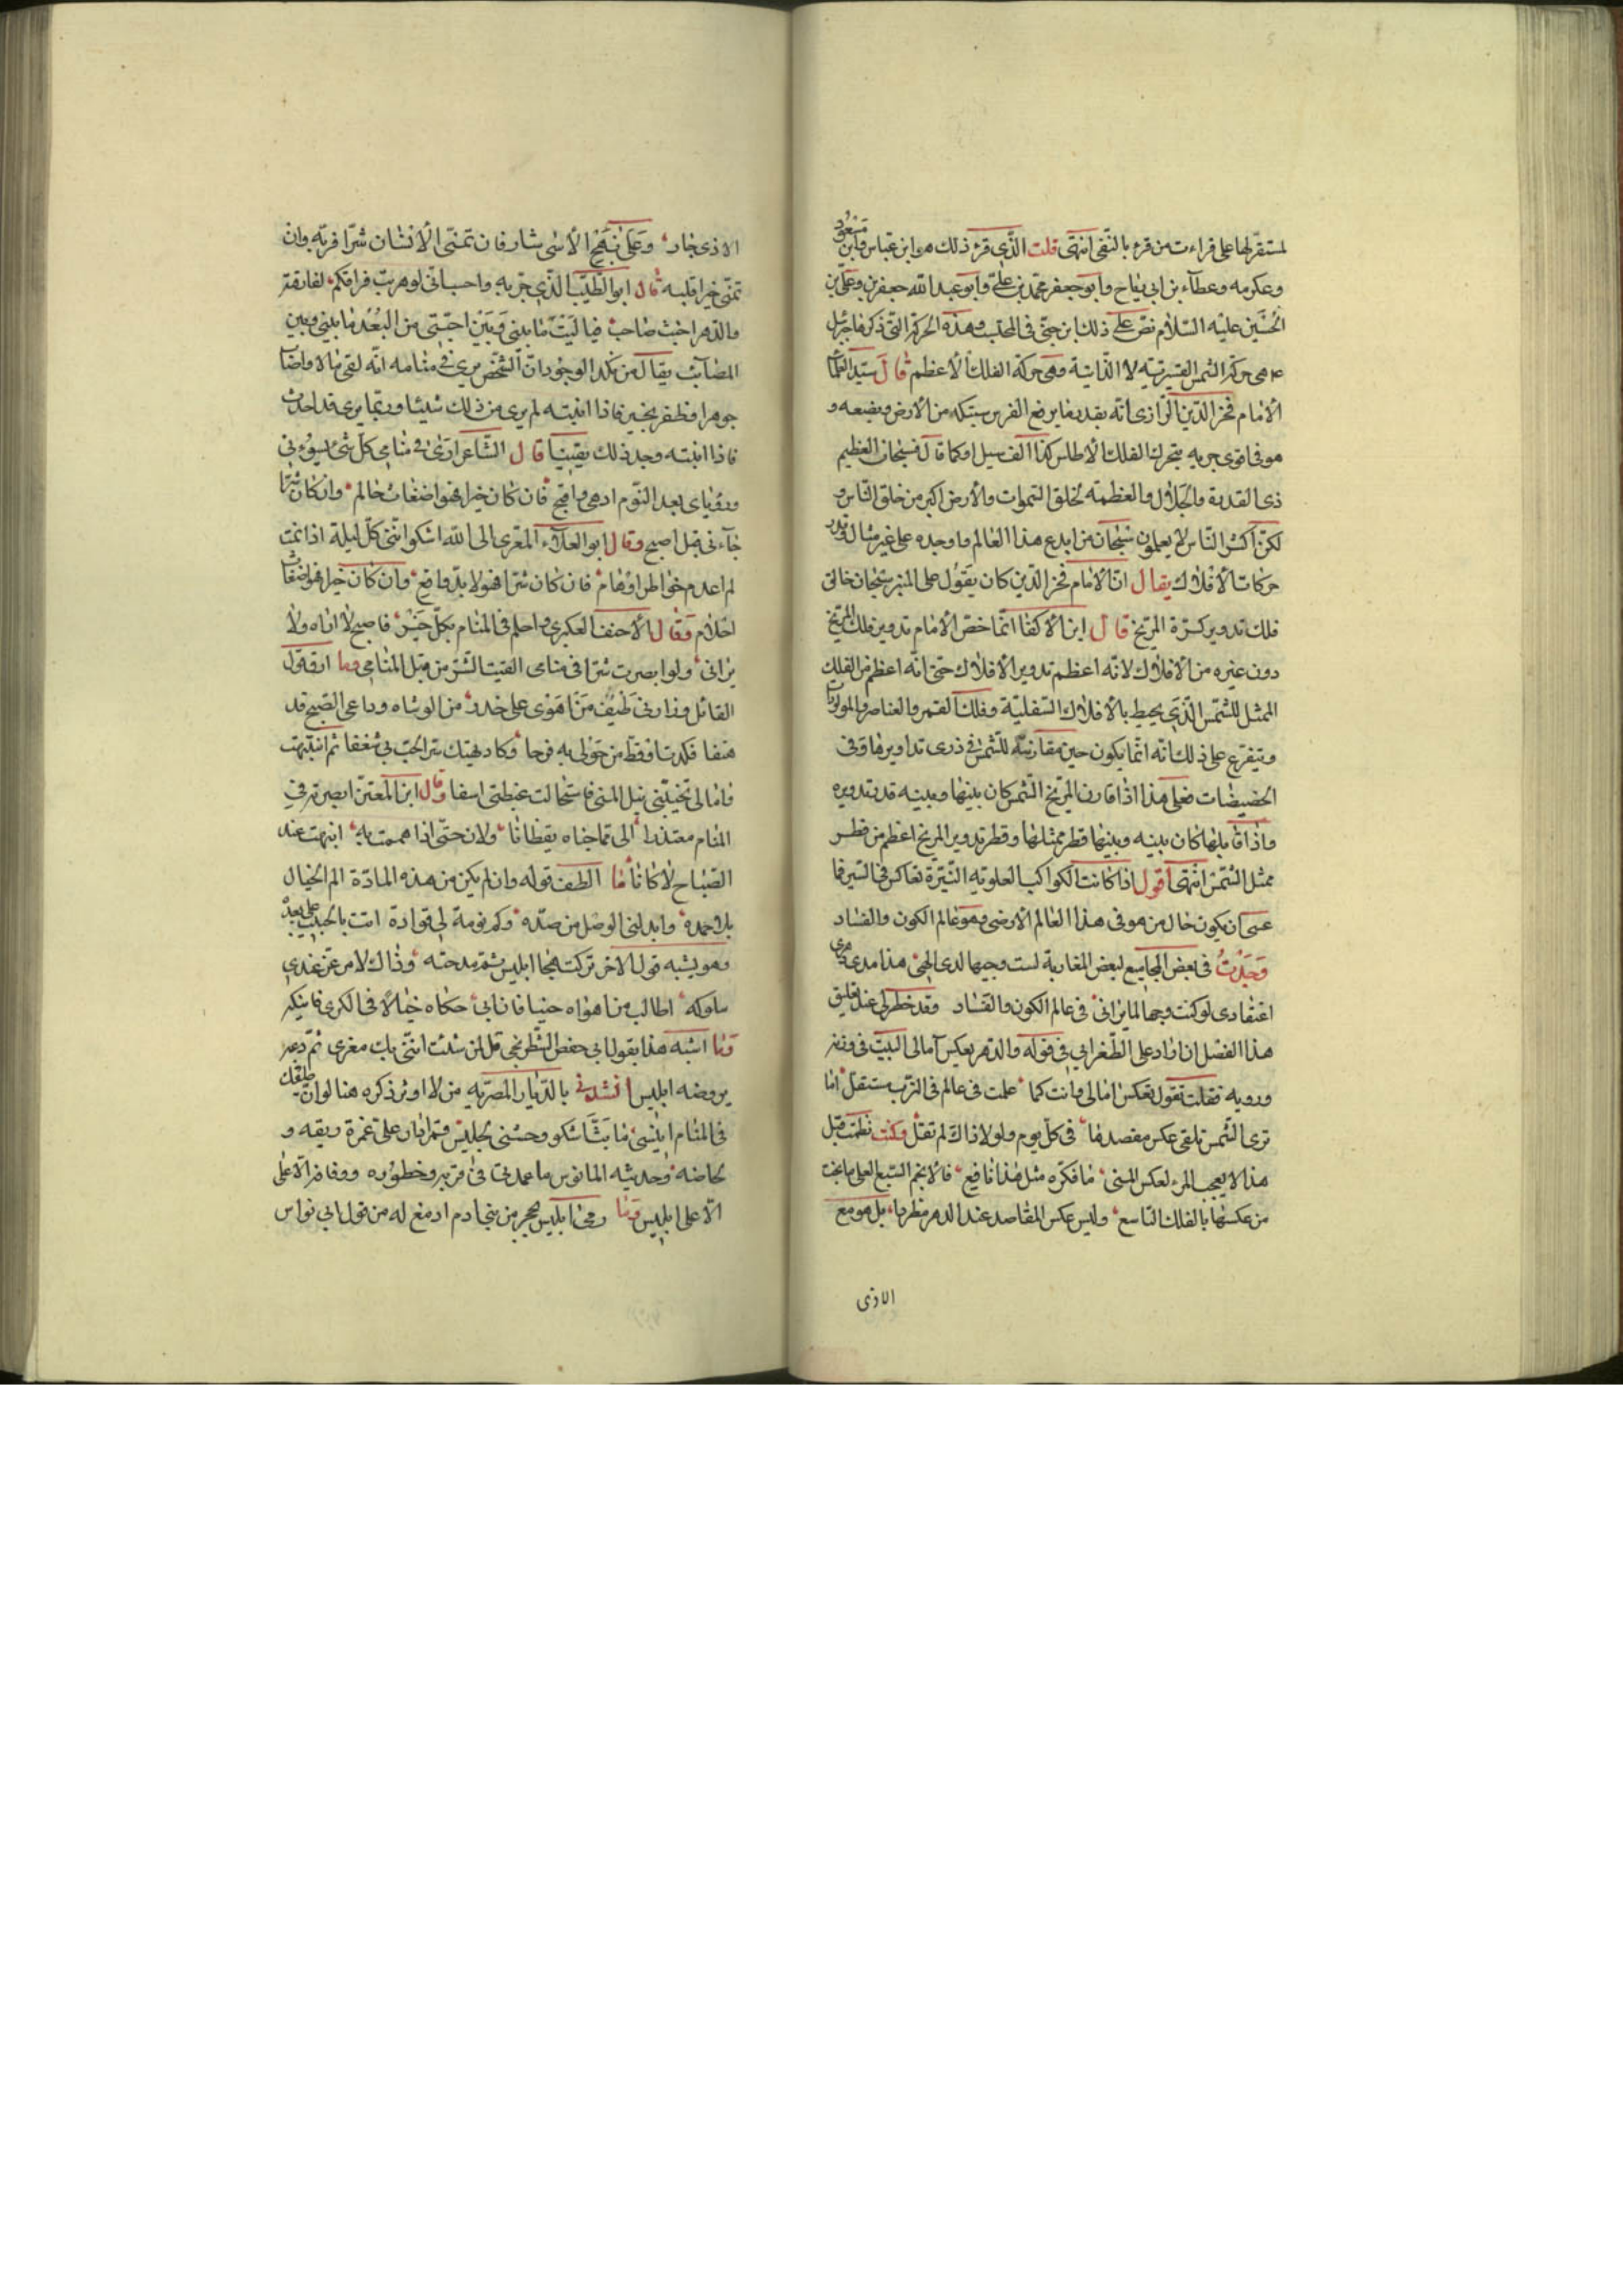 لمستقر لها على قراءت من قرء بالنفى انتهى قلت الذى قرء ذلك هو ابن عباس وابن مسعود
وعكرمه وعطآء بن ابى رباح وابو جعفر محمد بن على وابو عبد الله جعفر بن وعلى بن
الحسين عليه السلام نص على ذلك ابن جنى فى المحتسب وهذه الحركة التى ذكرها جبرئيل
هى حركة الشمس القسرتيه لا الذاتية وهى حركة الفلك الاعظم قال سيد العلمآ
الامام فخر الدين الرازى انه بقدر ما يرفع الفرس سنبكه من الارض ويضعه و
هو فى اقوى جريه يتحرك الفلك الاطلس كذا الف ميل او كما قال فسبحان العظيم
ذى القدرة والجلال والعظمة لخلق السموات والارض اكبر من خلق الناس و
لكن اكثر الناس لا يعلمون سبحان من ابدع هذا العالم واوجده على غير مثال وقدر
حركات الافلاك يقال ان الامام فخر الدين كان يقول على المنبر سبحان خالق
فلك تدوير كرة المريخ قال ابن الاكفا انما خص الامام تدوير فلك المريخ
دون غيره من الافلاك لانه اعظم تدوير الافلاك حتى انه اعظم من الفلك
الممثل للشمس الذى يحيط بالافلاك السفلية وفلك القمر والعناصر والمولدات
ويتفرع على ذلك انه انما يكون حين مقارنته للشمس فى ذرى تداويرها وفى
الحضيضات فعلى هذا اذا قارن المريخ الشمس كان بينها وبينه قدر تدويره
واذا قابلها كان بينه وبينها قطر ممثلها وقطر تدوير المريخ اعظم من قطر
ممثل الشمس انتهى اقول اذا كانت الكواكب العلويه النيرة تعاكس فى السير فما
عسى ان يكون حال من هو فى هذا العالم الارضى وهو عالم الكون والفساد
وجدت فى بعض المجاميع لبعض المغاربة لست وجيها لدى الهى هذا مدى
اعتقادى لو كنت وجها لما برانى فى عالم الكون والفساد وقد خطر لى عند تعليق
هذا الفصل ان اراد على الطغرابي فى قوله والدهر يعكس آمالى البيت فى وزنه
ورويه فقلت تقول تعكس امالى وانت كما علمت فى عالم فى الترب مستفل اما
ترى الشمس تلقى عكس مقصدها فى كل يوم ولولا ذاك لم تقل وكنت نظمت قبل
هذا لا يعجب المرء لعكس المنى ما فكره مثل هذا نافع فالانجم السبع العلى ما نجت
من عكسها بالفلك التاسع وليس عكس المقاصد عند الدهر مطردا، بل هو مع
الاذى
الاذى جار وعلى نهج الاسى سار فان تمنى الانسان شرا قربه وان
تمنى خيرا قلبه قال ابو الطيب الذى جربه واحسبانى لو هويت فراقكم لفارقتر
والدهر اخبث صاحب فيا ليت ما بينى وبين احبتى من البعد ما بينى وبين
المصائب يقال من نكد الوجود ان الشخص يرى فى منامه انه لقى مالا واصا
جوهرا وظفر بخير فاذا انتبه لم يرى من ذلك شيئا وربما يرى قد احدث
فاذا انتبه وجد ذلك يقينا قال الشاعر ارى فى منامى كل شئ يسوءنى
ورؤياى بعد النوم ادهى واقبح فان كان خيرا فهو اضغاث حالم وان كان شرا
جآءنى قبل اصبح وقال ابو العلاء المعرى الى الله اشكو اننى كل ليلة اذا نمت
لم اعدم خواطر اوهام فان كان شرا فهو لا بد واقع وان كان خيرا فهو اضغاث
احلام وقال الاحنف العكبرى واحلم فى المنام بكل خير فاصبح لا اراه ولا
يرانى ولو ابصرت شرا فى منامى لقيت الشر من قبل المنامى وما ارق قول
القائل وزارنى طيف من اهوى على حذر من الوشاه وداعى الصبح قد
هتفا فكدت اوقظ من حولى به فرحا وكاد يهتك ستر الحب بى شغفا ثم انتبهت
وامالى تخيلنى نيل المنى فاستحالت غبطتى اسفا وقال ابن المعتز ابصرته فى
المنام معتذرا الى مما جناه يقظانا ولان حتى اذا هممت به انبهت عند
الصباح لا كانا ما الطف قوله وان لم يكن من هذه المادة الم الخيال
بلا حمده وابدلنى الوصل من صده وكم نومة لى قوادة اتت بالحبيب على بعده
وهو يشبه قول الاخر تركت هجا ابليس ثم مدحته وذاك لامر عز عندى
سلوكه اطالب من اهواه حينا فان ابى حكاه خيالا فى الكرى فانيكه
وما اشبه هذا بقول ابى حفص الشطرنجى قل لمن شئت اننى بات مغرى ثم دعه
يروضه ابليس انشدنى بالديار المصريه من لا اوثر ذكره هنا لو ان طيفك
فى المنام انيسى ما بت اشكو وحشتى لجليس قمر ابان على غمرة ريقه و
لحاضه وحديثه المانوس ما عمدنى فى قربه وخطوره ووفا ذر الاعلى
الا على ابليس وما رمى ابليس بحجر من بنى ادم ادمغ له من قول ابى نواس